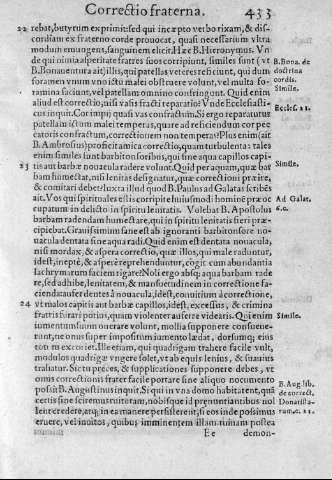 Correctio fraterna. 433
22 rebat, butyrum exprimit: sed qui inepto verbo rixam, & dis-
cordiam ex fraterno corde prouocat, quasi necessarium vltra
modum emungens, sanguinem elicit. Hæc B. Hieronymus. Vn
de qui nimia asperitate fratres suos corripiunt, similes sunt (vt
B. Bona. de
B. Bonauentura ait) illis, qui patellas veteres reficiunt, qui dum
doctrina
foramen vnum vno ictu malei obstruere volunt, vel multa fo-
cordis.
ramina faciunt, vel patellam omnino confringunt. Quid enim
Simile.
aliud est correctio, nisi vasis fracti reparatio? Vnde Ecclesiasti-
cus inquit. Cor impij quasi vas confractum. Si ergo reparaturus
Eccles. 21
patellam ictum malei temperas, quare ad reficiendum cor pec
catoris confractum, correctionem non temperas? Plus enim (ait
B. Ambrosius) proficit amica correctio, quam turbulenta: tales
enim similes sunt barbitonsoribus, qui sine aqua capillos capi-
23 tis aut barbæ nouacula radere volunt. Quid per aquam, quæ bar
Simile.
bam humectat, nisi lenitas designatur, quæ correctioni præire,
& comitari debet? Iuxta illud quod B. Paulus ad Galatas scribēs
ait. Vos qui spirituales estis corripite huiusmodi homines præoc
Ad Galat.
cupatum in delicto in spiritu lenitatis. Volebat B. Apostolus
6.c.
barbam radendam humectare, qui in spiritu lenitatis fieri præ-
cipiebat. Grauissimum sane est ab ignoranti barbitonsore no-
uacula dentata sine aqua radi. Quid enim est dentata nouacula,
nisi mordax, & aspera correctio, quæ illos, qui male raduntur,
idest, ineptè, & asperè reprehenduntur, cogit cum abundantia
lachrymarum faciem rigare? Noli ergo absq; aqua barbam rade
re, sed adhibe, lenitatem, & mansuetudinem in correctione fa-
cienda: aufer dentes à nouacula, idest, conuitium à correctione,
24 vt malos capitis aut barbæ capillos, idest, excessus, & crimina
fratris furari potius, quam violenter auferre videaris. Qui enim
Simile.
iumentum suum onerare volunt, mollia supponere consueue-
runt, ne onus super impositum iumento lædat, dorsumq; eius
totum excoriet. Ille etiam, qui quadrigam trahere facile vult,
modulos quadrigæ vngere solet, vt ab equis lenius, & suauius
trahatur. Sic tu preces, & supplicationes supponere debes, vt
onus correctionis frater facile portare sine aliquo nocumento
B. Aug. lib.
possit. B. Augustinus inquit. Si quis in vna domo habitatet, quā
de correct.
certis sine sciremus ruituram, nobisque id prenuntiantibus nol
Donatista-
lent credere, atq; in ea manere persisterent, si eos inde possimus
rum. c. 21.
eruere, vel inuitos, quibus imminentem illam ruinam postea
Ee demon-